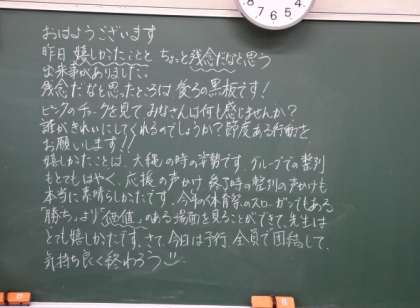 おはようございます
昨日 嬉しかったことと ちょっと残念だなと思う
出来事がありました。
残念だなと思ったところは後ろの黒板です！
ピンクのチョークを見て みなさんは何も感じませんか？
誰がきれいにしてくれるのでしょうか？節度ある行動を
お願いします！！
嬉しかったことは、大縄の時の姿勢です。グループでの整列
もとてもはやく、応援の声かけ 終了時の整列の声かけも
本当に素晴らしかったです。今年の体育祭のスローガンでもある
勝ちより「価値」のある場面を見ることができて、先生は
とても嬉しかったです。さて、今日は予行 全員で団結して、
気持ち良く終わろう